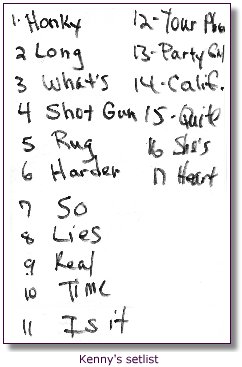 1. Honky
2 Long
3 What's
4 Shot Gun
5 Rug
6 Harder
7 So
8 Lies
9 Real
10 TIME
11 Is it
12-Your
13-Party Girl
14-Calif.
15-Quite
16 She's
17 Heart
Kenny's setlist